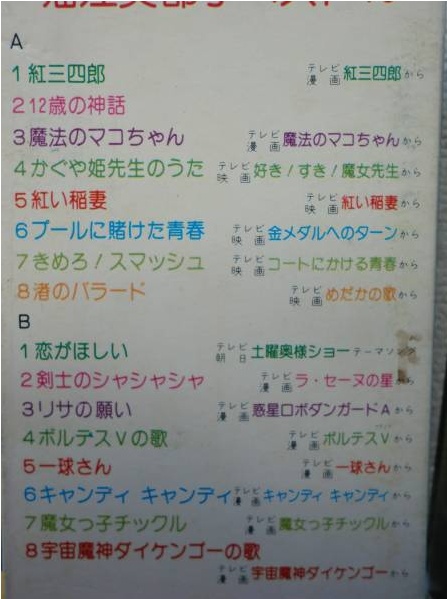 A
1 紅三四郎 テレビ漫画 紅三四郎から
2 12歳の神話
3 魔法のマコちゃん テレビ漫画 魔法のマコちゃんから
4 かぐや姫先生のうた テレビ映画 好き!すき!魔女先生から
5 紅い稲妻 テレビ映画 紅い稲妻から
6 プールに賭けた青春 テレビ映画 金メダルへのターンから
7 きめろ!スマッシュ テレビ映画 コートにかける青春から
8 渚のバラード テレビ映画 めだかの歌から
B
1 恋がほしい テレビ朝日 土曜奥様ショーテーマソング
2 剣士のシャシャシャ テレビ漫画 ラ・セーヌの星から
3 リサの願い テレビ漫画 惑星ロボダンガードAから
4 ボルテスVの歌 テレビ漫画 ボルテスVから
5 一球さん テレビ漫画 一球さんから
6 キャンディ キャンディ テレビ漫画 キャンディ キャンディから
7 魔女っ子チックル テレビ漫画 魔女っ子チックルから
8 宇宙魔神ダイケンゴーの歌
テレビ漫画 宇宙魔神ダイケンゴーから